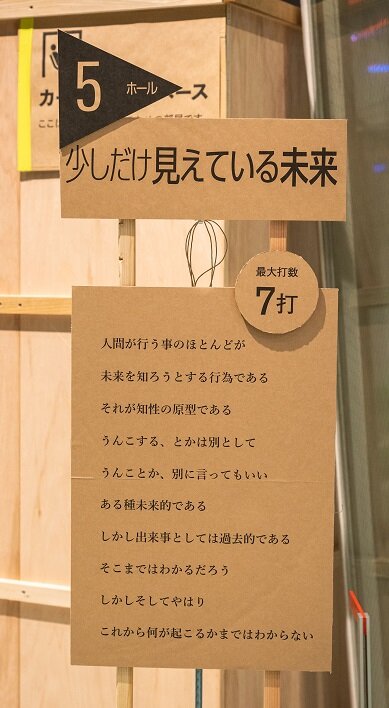 5 ホール
カ
ース
ここ
少しだけ見えている未来
最大打数
7打
人間が行う事のほとんどが
未来を知ろうとする行為である
それが知性の原型である
うんこする、とかは別として
うんことか、別に言ってもいい
ある種未来的である
しかし出来事としては過去的である
そこまではわかるだろう
しかしそしてやはり
これから何が起こるかまではわからない